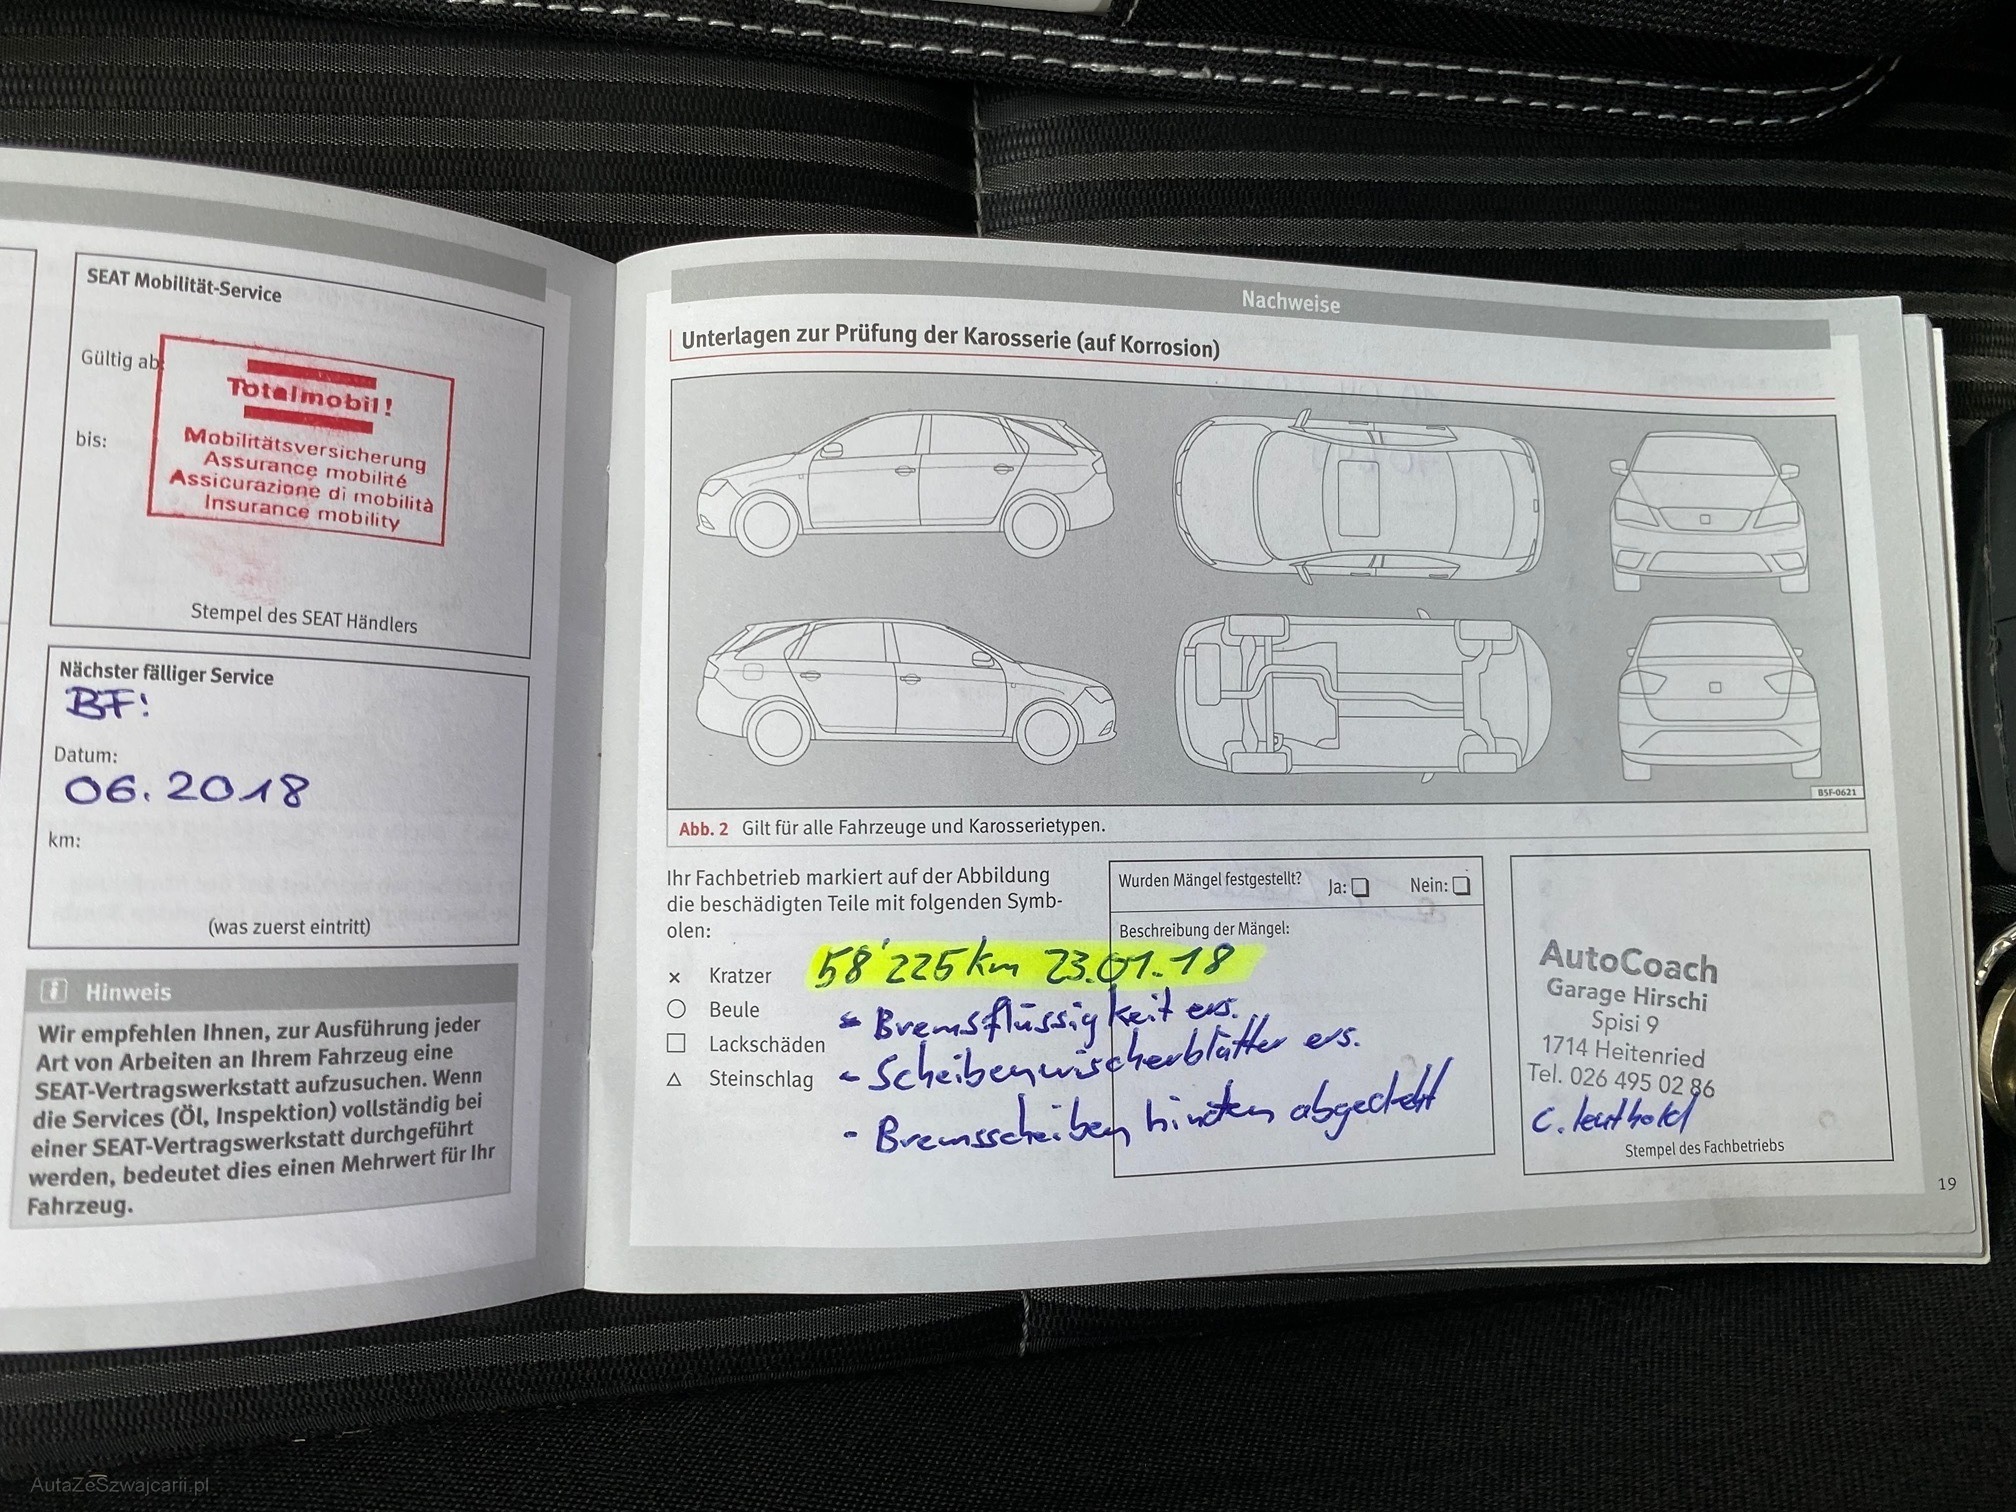 SEAT Mobilität-Service
Gültig ab:
bis:
Totalmobil!
Mobilitätsversicherung
Assurance mobilité
Assicurazione di mobilità
Insurance mobility
Stempel des SEAT Händlers
Nächster fälliger Service
BF!
Datum:
06.2018
km:
(was zuerst eintritt)
Hinweis
Wir empfehlen Ihnen, zur Ausführung jeder
Art von Arbeiten an Ihrem Fahrzeug eine
SEAT-Vertragswerkstatt aufzusuchen. Wenn
die Services (Öl, Inspektion) vollständig bei
einer SEAT-Vertragswerkstatt durchgeführt
werden, bedeutet dies einen Mehrwert für Ihr
Fahrzeug.
Nachweise
Unterlagen zur Prüfung der Karosserie (auf Korrosion)
B5F-0621
Abb. 2 Gilt für alle Fahrzeuge und Karosserietypen.
Ihr Fachbetrieb markiert auf der Abbildung
die beschädigten Teile mit folgenden Symb-
olen:
× Kratzer
○ Beule
□ Lackschäden
△ Steinschlag
Wurden Mängel festgestellt? Ja: □ Nein: □
Beschreibung der Mängel:
58'225km 23.01.18
- Bremsflüssigkeit ers.
- Scheibenwischerblätter ers.
- Bremsscheiben hinten abgedreht
AutoCoach
Garage Hirschi
Spisi 9
1714 Heitenried
Tel. 026 495 02 86
C. Leuthold
Stempel des Fachbetriebs
19
AutaZeSzwajcarii.pl